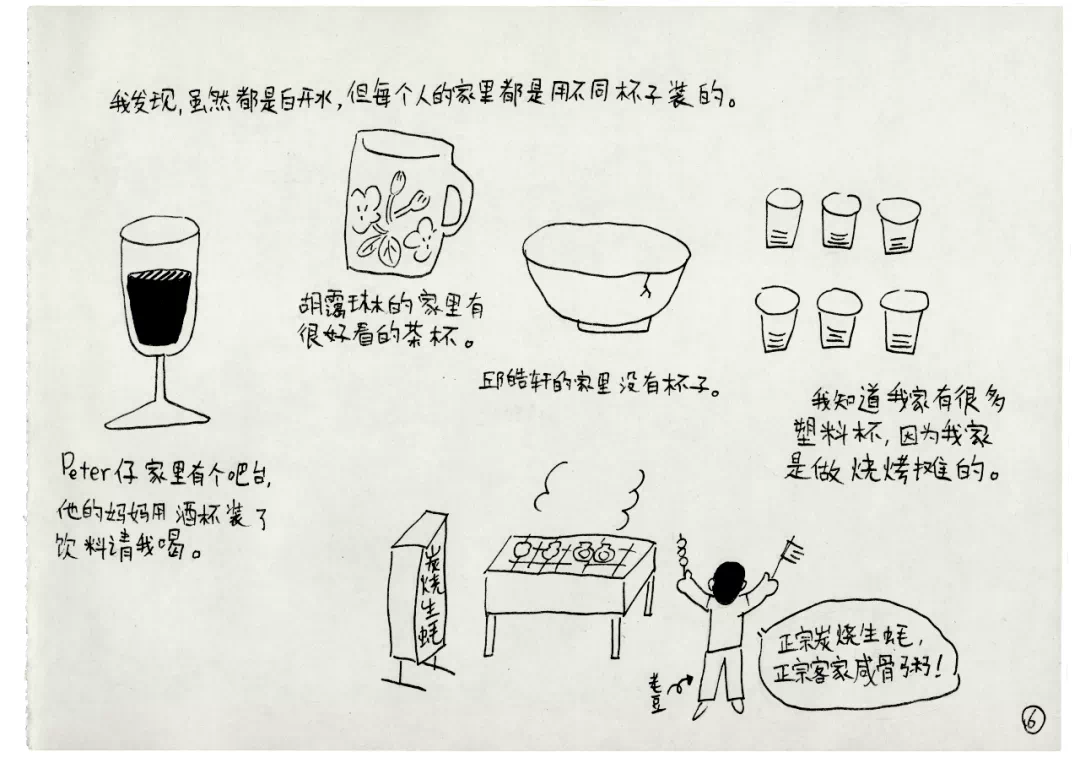 我发现，虽然都是白开水，但每个人的家里都是用不同杯子装的。
胡露琳的家里有
很好看的茶杯。
邱皓轩的家里没有杯子。
我知道我家有很多
塑料杯，因为我家
是做烧烤摊的。
Peter仔家里有个吧台，
他的妈妈用酒杯装了
饮料请我喝。
炭烧生蚝
正宗炭烧生蚝，
正宗客家咸骨粥！
老豆
6